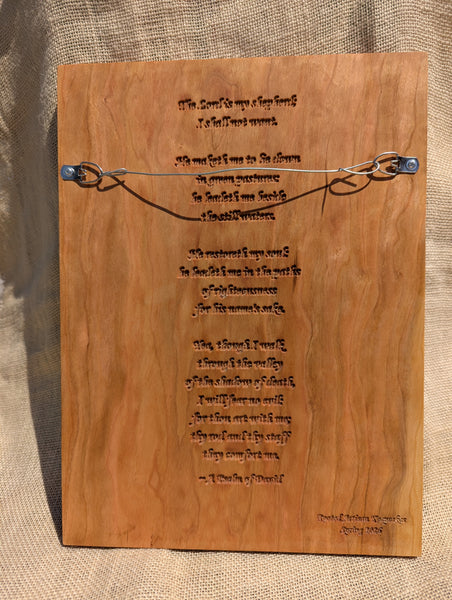 The Lord is my shepherd
I shall not want.
He maketh me to lie down
in green pastures:
he leadeth me beside
the still waters.
He restoreth my soul:
he leadeth me in the paths
of righteousness
for his name's sake.
Yea, though I walk
through the valley
of the shadow of death,
I will fear no evil:
for thou art with me;
thy rod and thy staff
they comfort me.
~ A Psalm of David
Spring